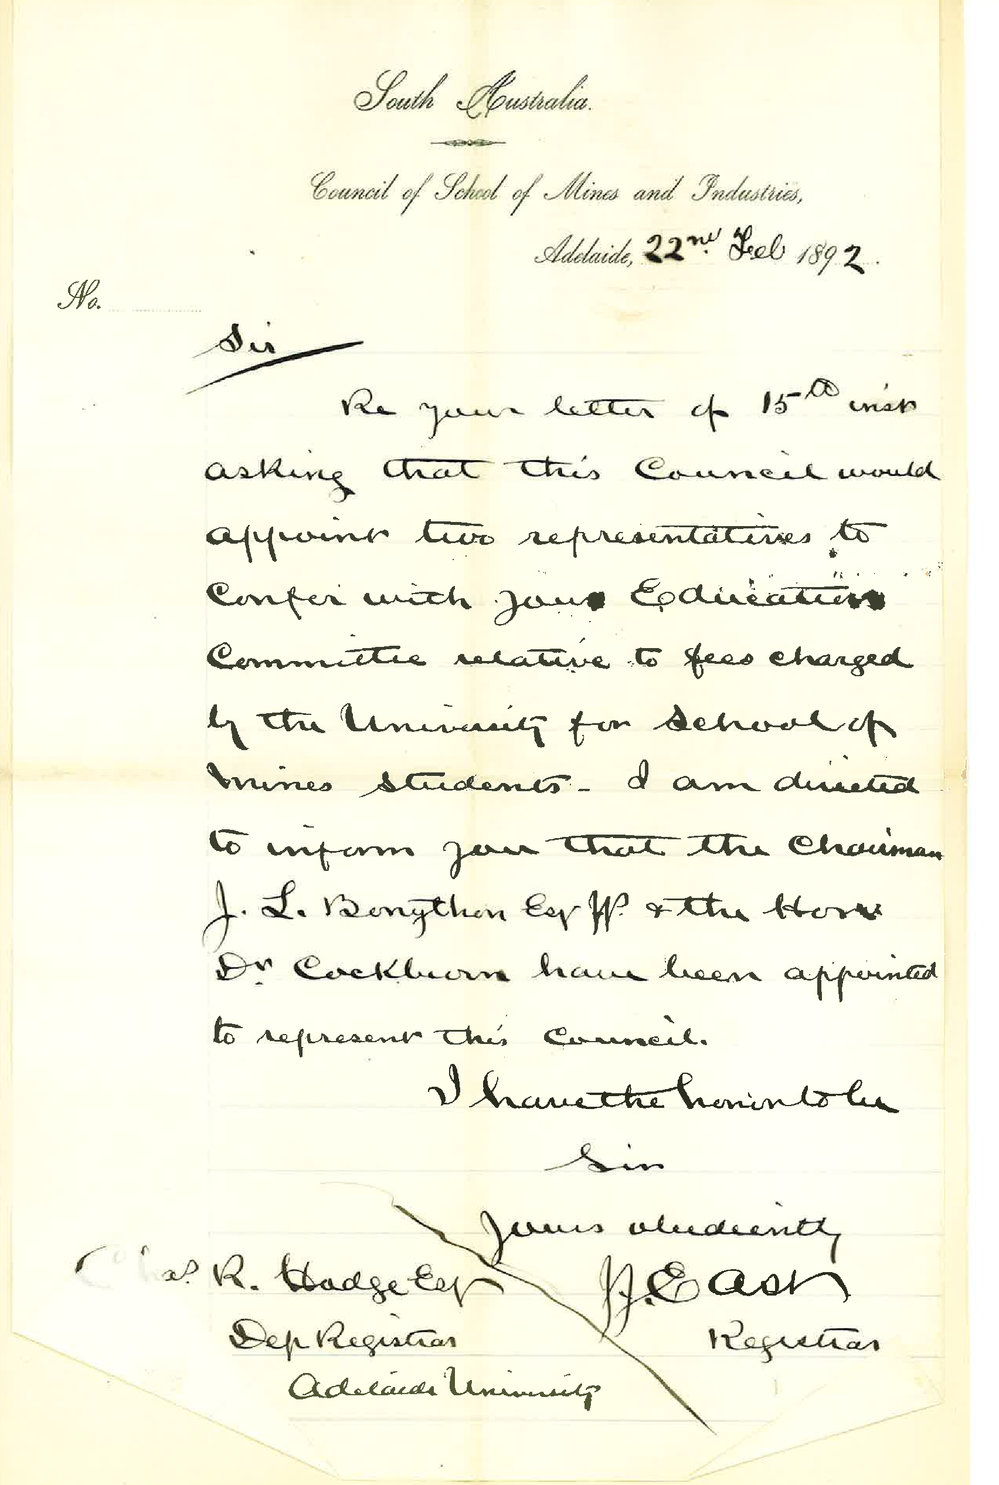 South Australia.
Council of School of Mines and Industries,
Adelaide, 22nd Feb 1892.
No.
Sir
Re your letter of 15th inst
asking that this Council would
appoint two representatives to
confer with your Education
Committee relative to fees charged
by the University for School of
Mines students - I am directed
to inform you that the Chairman
J. L. Bonython Esq JP. & the Hon
Dr Cockburn have been appointed
to represent this Council.
I have the honor to be
Sir
Yours obediently
Chas R. Hodge Esq
J.J. East
Dep Registrar
Registrar
Adelaide University